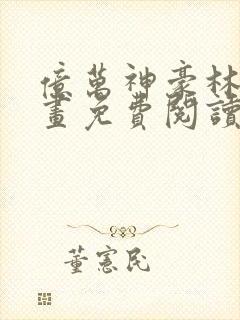 億萬神豪林
畫免費閱讀
董憲民